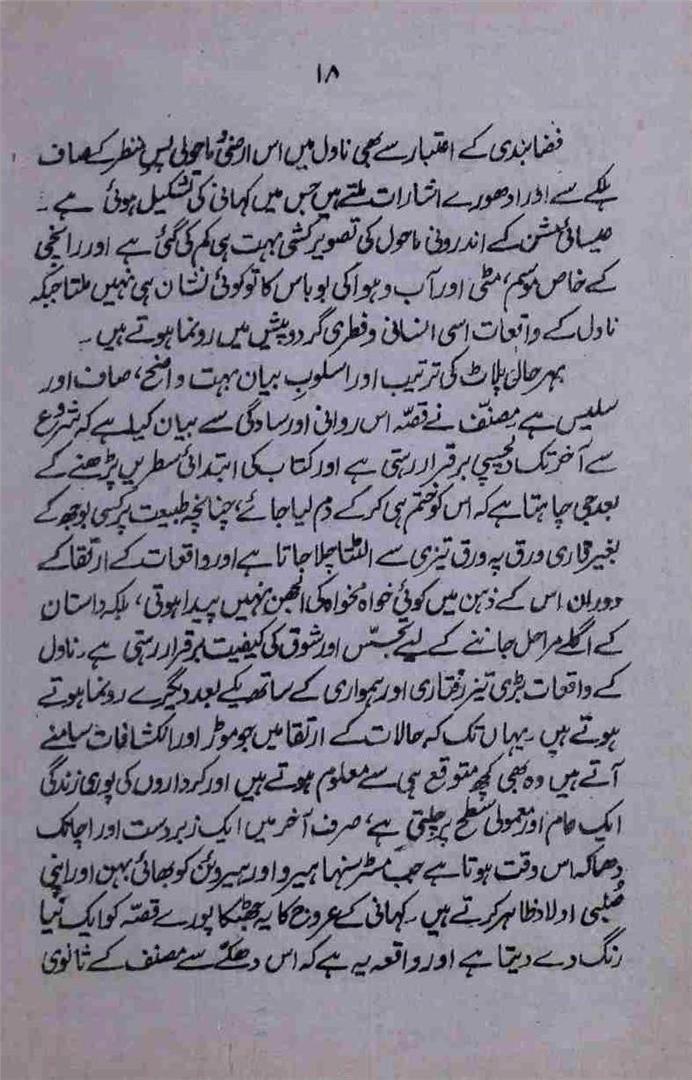 ۱۸
فضا بندی کے اعتبار سے بھی ناول میں اس ارضی و ماحولی پس منظر کے صاف
ہلکے سے اور ادھورے اشارات ملتے ہیں جس میں کہانی کی تشکیل ہوئی ہے ۔
عیسائی مشن کے اندرونی ماحول کی تصویر کشی بہت ہی کم کی گئی ہے اور رانچی
کے خاص موسم، مٹی اور آب و ہوا کی بو باس کا تو کوئی نشان ہی نہیں ملتا جبکہ
ناول کے واقعات اسی انسانی و فطری گرد و پیش میں رونما ہوتے ہیں ۔
بہر حال پلاٹ کی ترتیب اور اسلوب بیان بہت واضح، صاف اور
سلیس ہے مصنّف نے قصّہ اس روانی اور سادگی سے بیان کیا ہے کہ شروع
سے آخر تک دلچسپی برقرار رہتی ہے اور کتاب کی ابتدائی سطریں پڑھنے کے
بعد جی چاہتا ہے کہ اس کو ختم ہی کر کے دم لیا جائے، چنانچہ طبیعت پر کسی بوجھ کے
بغیر قاری ورق پہ ورق تیزی سے الٹتا چلا جاتا ہے اور واقعات کے ارتقا کے
دوران اس کے ذہن میں کوئی خواہ مخواہ کی الجھن نہیں پیدا ہوتی، بلکہ داستان
کے اگلے مراحل جاننے کے لیے تجسّس اور شوق کی کیفیت برقرار رہتی ہے ۔ ناول
کے واقعات بڑی تیز رفتاری اور ہمواری کے ساتھ یکے بعد دیگرے رونما ہوتے
ہوتے ہیں ۔ یہاں تک کہ حالات کے ارتقا میں جو موڑ اور انکشافات سامنے
آتے ہیں وہ بھی کچھ متوقع ہی سے معلوم ہوتے ہیں اور کرداروں کی پوری زندگی
ایک عام اور معمولی سطح پر چلتی ہے، صرف آخر میں ایک زبردست اور اچانک
دھماکہ اس وقت ہوتا ہے جب مسٹر سنہا ہیرو اور ہیروئن کو بھائی بہن اور اپنی
صُلبی اولاد ظاہر کرتے ہیں ۔ کہانی کے عروج کا یہ جھٹکا پورے قصّہ کو ایک نیا
رنگ دے دیتا ہے اور واقعہ یہ ہے کہ اس دھکے سے مصنف کے ثانوی